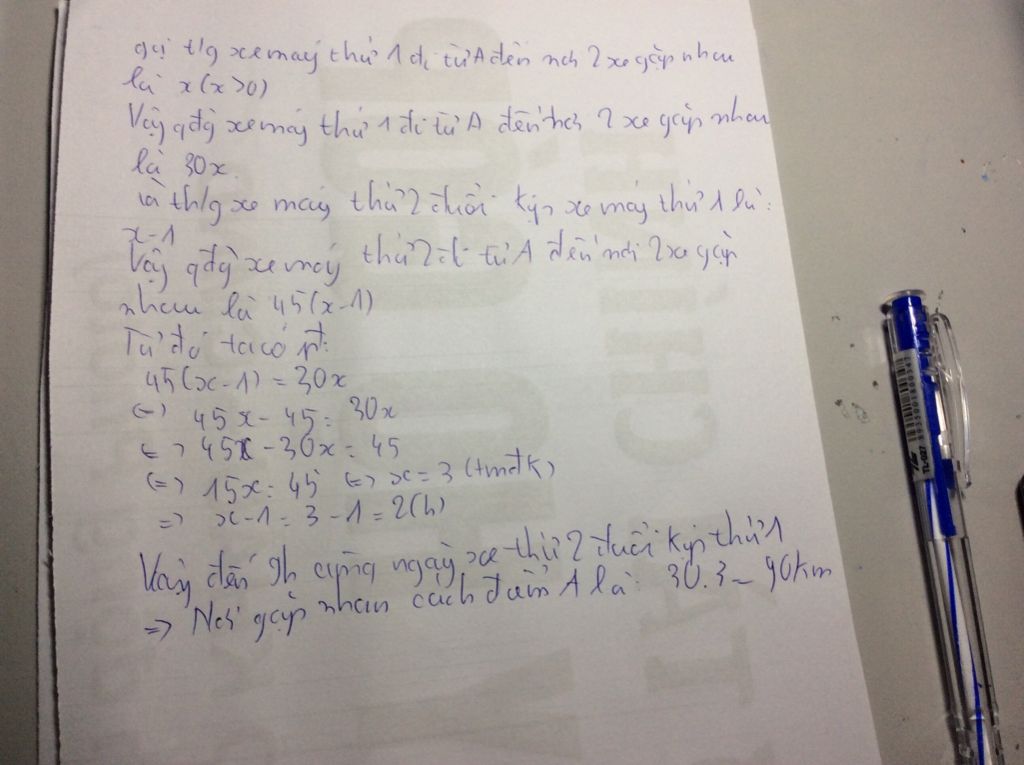 gọi t/g xe máy thứ 1 đi từ A đến nơi 2 xe gặp nhau
là x (x>0)
Vậy qđg xe máy thứ 1 đi từ A đến nơi 2 xe gặp nhau
là 30x.
và th/g xe máy thứ 2 đuổi kịp xe máy thứ 1 là:
x-1
Vậy qđg xe máy thứ 2 đi từ A đến nơi 2 xe gặp
nhau là 45(x-1)
Từ đó ta có pt:
45(x-1) = 30x
<=> 45x - 45 = 30x
<=> 45x - 30x = 45
<=> 15x = 45 <=> x = 3 (tmđk)
=> x-1 = 3-1 = 2(h)
Vậy đến 9h cùng ngày xe thứ 2 đuổi kịp thứ 1
=> Nơi gặp nhau cách điểm A là: 30.3 = 90km
TL-027